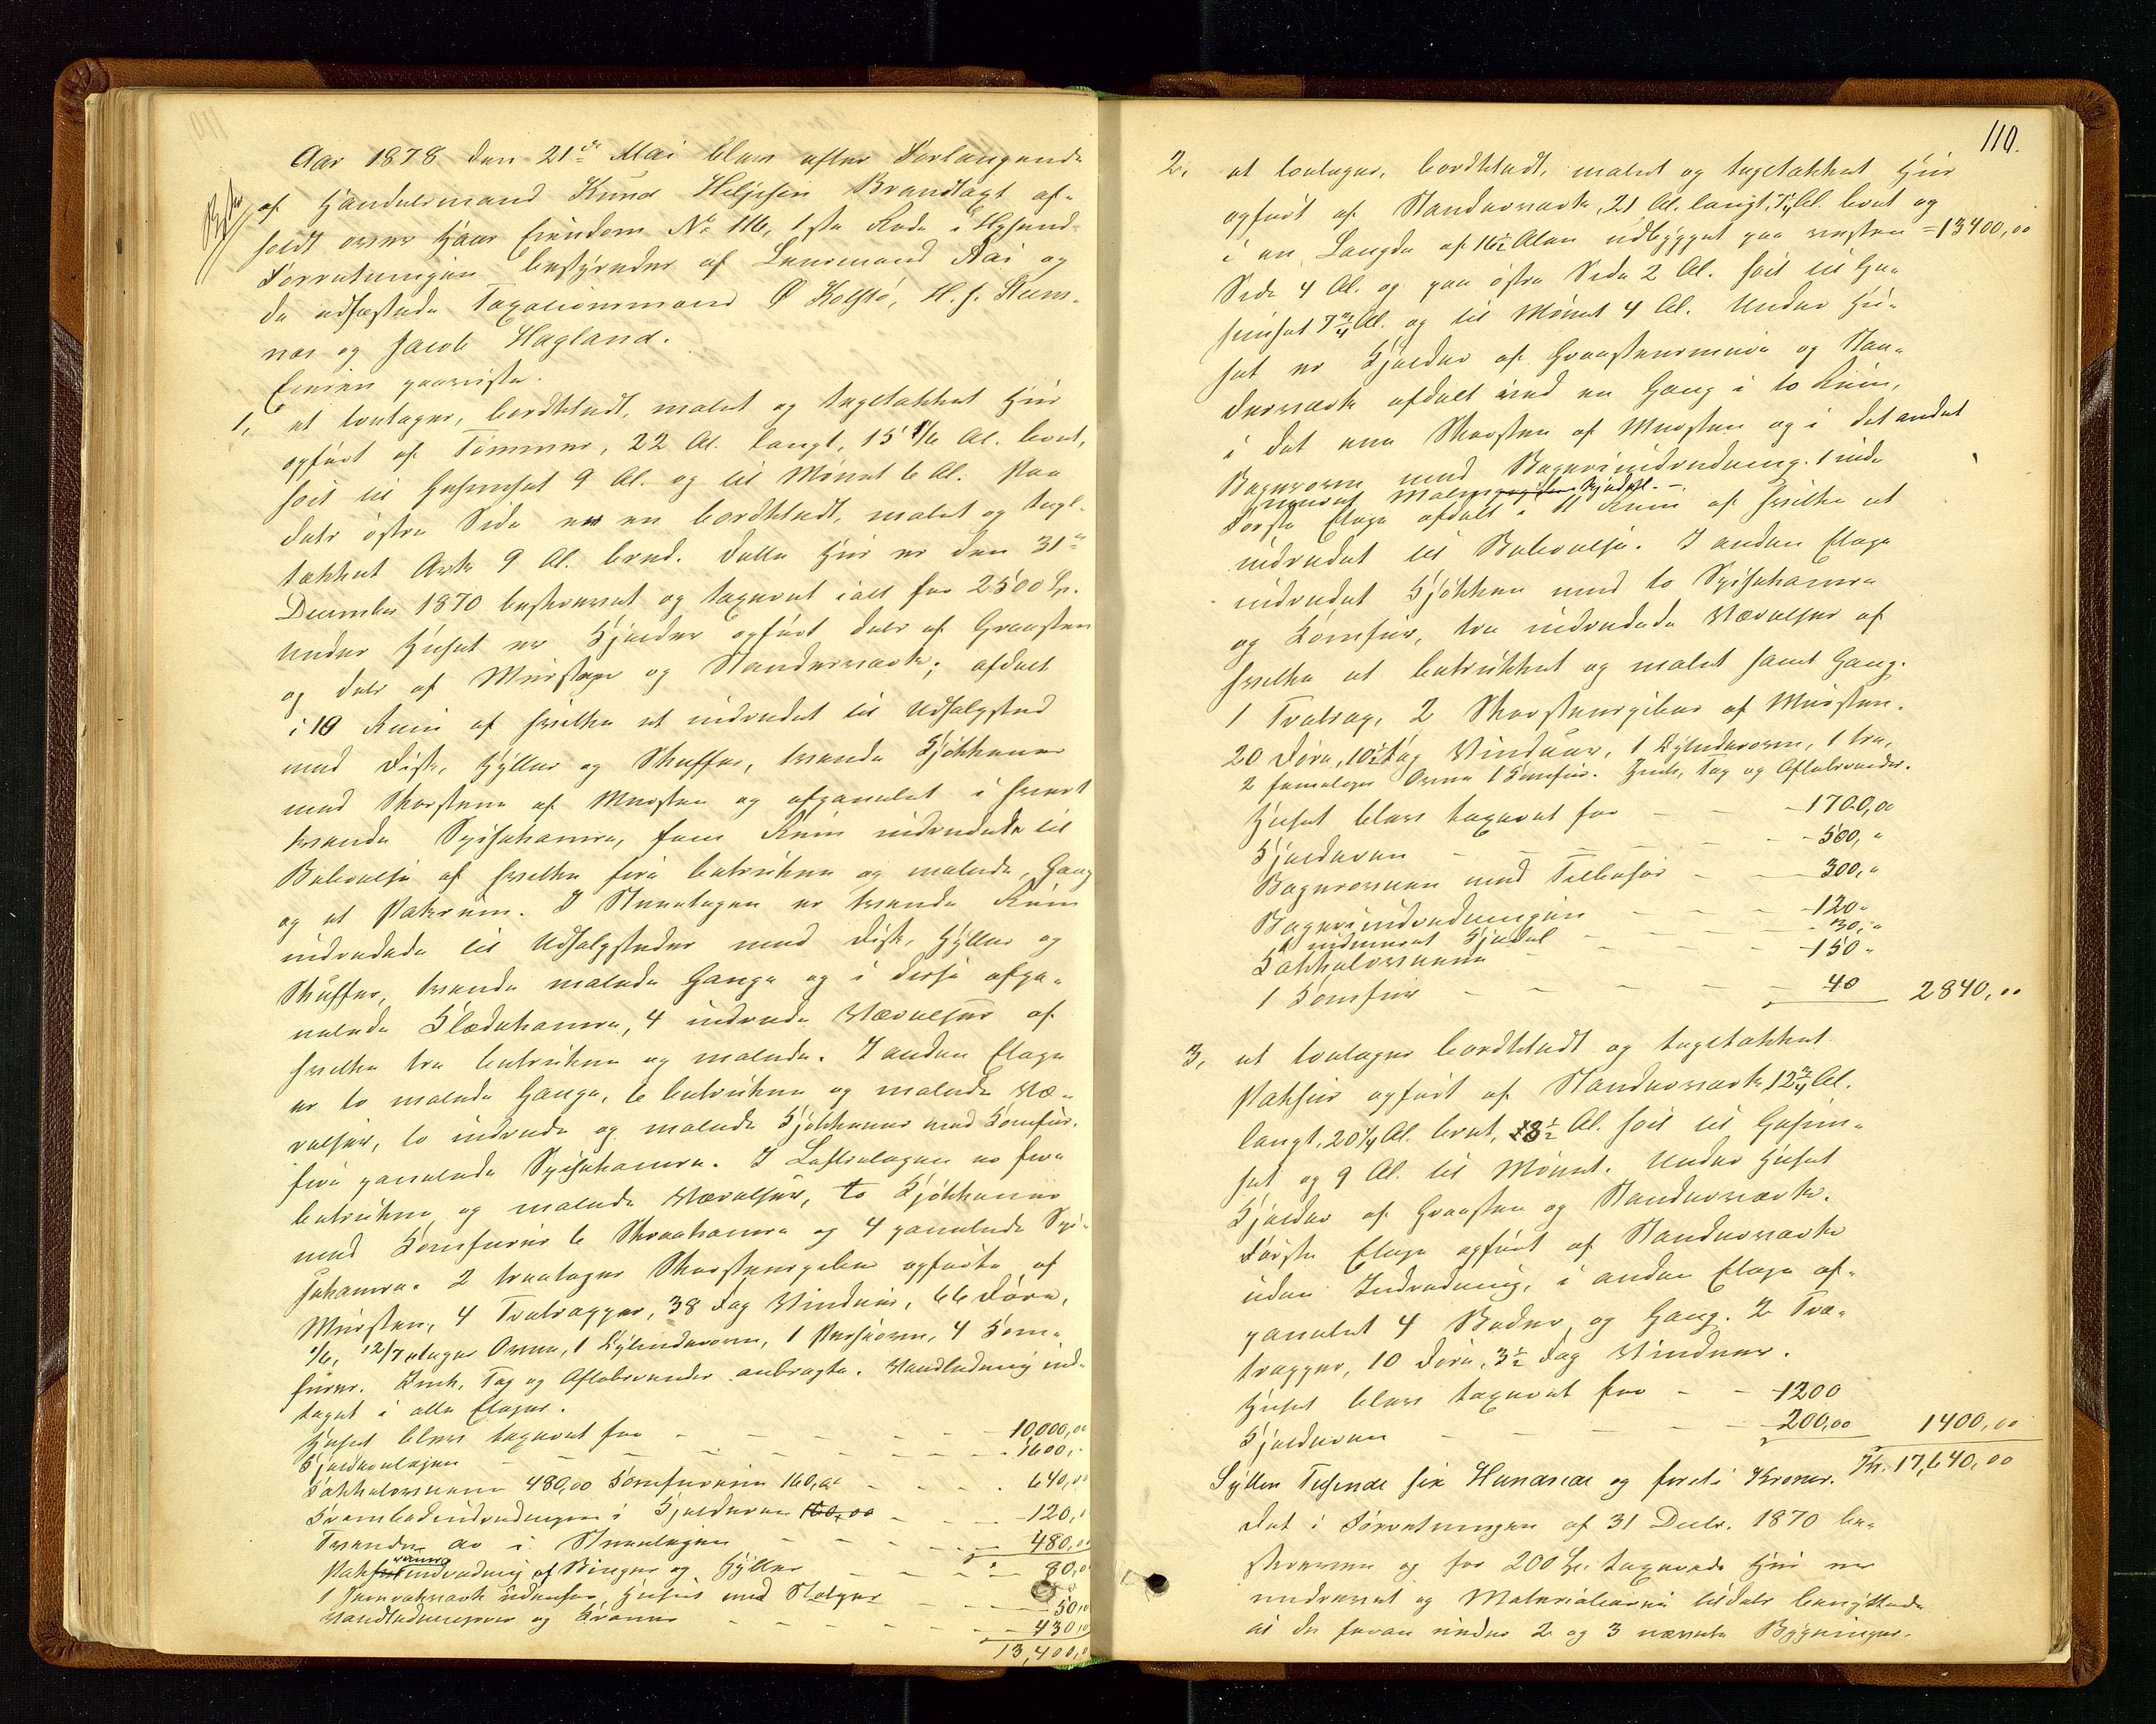 Aar 1878 den 21de Mai blev efter Forlangende
af Handelsmand Knud Heljesen Brandtaxt af-
holdt over hans Eiendom No 116, 1ste Rode i Egersund.
Forretningen bestyredes af Lensmand Aai og
de udfæstede Taxationsmænd O Kolstø, H. J.
og Jacob Hagland.
Eieren paaviste.
1, et toetages, bordklædt, malet og tegltækket Huus
opført af Tømmer, 22 Al. langt, 15 1/6 Al. bredt,
høit til Gesimset 9 Al. og til Mønet 6 Al. Paa
dets østre Side er en bordklædt, malet og tegl-
tækket Ark 9 Al. bred. Dette Huus er den 31te
December 1870 beskrevet og taxeret ialt for 2500 Sp.
Under Huset er Kjelder opført dels af Graasten
og dels af Mursten og Standerværk; afdelt
i 10 Rum af hvilke et indredet til Udsalgsted
med Disk, Hyller og Skuffer, tvende Kjøkkener
med Skorstene af Mursten og afpanelet i hvert
tvende Spisekamre, fem Rum indredede til
Beboelse af hvilke fire betrukne og malede, Gang
og et Pakrum. I Stueetagen er tvende Rum
indredede til Udsalgsteder med Disk, Hyller og
Skuffer, tvende malede Gange og i disse afpa-
nelede Klædekamre, 4 indrede Værelser af
hvilke tre betrukne og malede. I anden Etage
er to malede Gange, 6 betrukne og malede Væ-
relser, to indrede og malede Kjøkkener med Komfur,
fire panelede Spisekamre. I Loftsetagen er fire
betrukne og malede Værelser, to Kjøkkener
med Komfurer 6 Skraakamre og 4 panelede Spi-
sekamre. 2 treetages Skorstenspiber opførte af
Mursten, 4 Tretrapper, 38 Fag Vinduer, 66 Døre,
Ovne, 1 Cylinderovn, 1 4 Kom-
furer. Dush, Tag og Afløbsrender anbragte. Vandledning ind-
taget i alle Etager.
Huset blev taxeret for - - - - - 10,000,00
Kjelderetagen - - - - - 1600,-
Kakkelovnene 480,00 Komfurerne 160,00 - - - 640,00
Krambodindredningen i Kjelderen 160,00 - - - 120,"
Tvende do i Stueetagen - - - - 480,00
indredning af Binger og Hyller - - - 80,00
1 udenfor Huset med Stolper - - - 50,00
Vandledningsrør og Kraner - - - - 430,00
13,400,00
110.
2, et toetages, bordklædt, malet og tegltækket Huus
opført af Standerværk, 21 Al. langt, Al. bredt og
i en Længde af 16½ Alen udbygget paa vestre = 13400,00
Side 4 Al. og paa østre Side 2 Al. høit til Ge-
simset 7¾ Al. og til Mønet 4 Al. Under Hu-
set er Kjelder af Graastensmure og Stan-
derværk afdelt ved en Gang i to Rum,
i det ene Skorsten af Mursten og i det andet
Bagerovn med Bageriindredning. 1 inde-
muret Kjedel. -
Første Etage afdelt i Rum af hvilke et
indredet til Beboelse. I anden Etage
indredet Kjøkken med to Spisekamre
og Komfur, tre indredede Værelser af
hvilke et betrukket og malet samt Gang.
1 Tretrap, 2 Skorstenspiber af Mursten.
20 Døre, 10½ Fag Vinduer, 1 Cylinderovn, 1 tre,
2 femetages Ovne 1 Komfur. Dush, Tag og Afløbsrender.
Huset blev taxeret for - - - 1700,00
Kjelderen - - - - - 500,"
Bagerovnen med Tilbehør - - 300,"
Bageriindredningen - - - 120"
1 indmuret Kjedel - - - 30,"
Kakkelovnene - - - 150"
1 Komfur - - - - - 40 2840,00
3, et toetages bordklædt og tegltækket
Pakhus opført af Standerværk 12¾ Al.
langt, 20¼ Al. bredt, 8½ Al. høit til Gesim-
set og 9 Al. til Mønet. Under Huset
Kjelder af Graasten og Standerværk.
Første Etage opført af Standerværk
uden Indredning, i anden Etage af-
panelet 4 Boder og Gang. 2 Træ-
trapper, 10 Døre, 3½ Fag Vinduer.
Huset blev taxeret for - - 1200
Kjelderen - - - - - 200,00 1400,00
Sytten Tusende sex Hundrede og foreti Kroner. Kr. 17,640,00
Det i Forretningen af 31 Decbr. 1870 be-
skrevne og for 200 Sp. taxerede Huus er
nedrevet og Materialierne tildels benyttede
til de foran under 2 og 3 nævnte Bygninger.